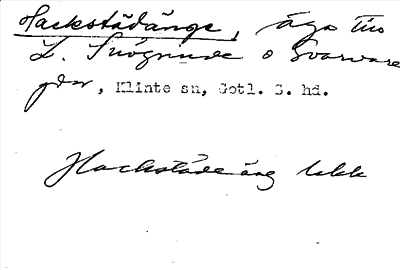 Hackstädänge, äga till
L. Snögrinde o Svarvare
gdar, Klinte sn, Gotl. S. hd.
Hackstäde äng ekk